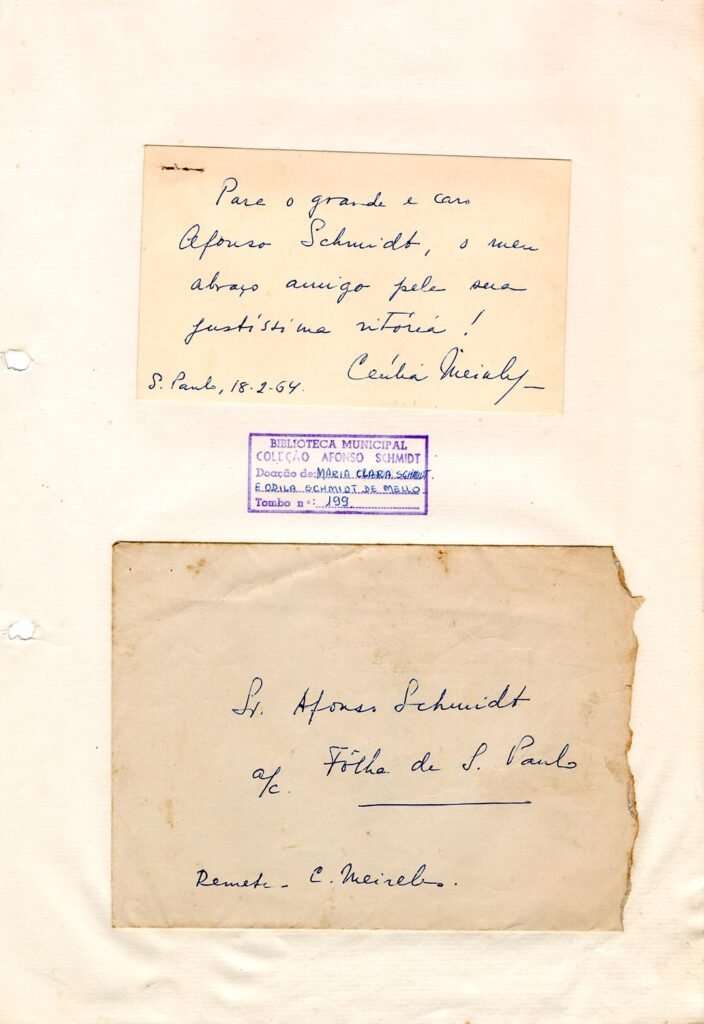 Para o grande e caro
Afonso Schmidt, o meu
abraço amigo pela sua
justíssima vitória!
Cecília Meireles
S. Paulo, 18-2-64.
BIBLIOTECA MUNICIPAL
COLEÇÃO AFONSO SCHMIDT
Doação de: MARIA CLARA SCHMIDT
E ODILA SCHMIDT DE MELLO
Tombo nº: 199
Sr. Afonso Schmidt
a/c. Fôlha de S. Paulo
Remete - C. Meireles.